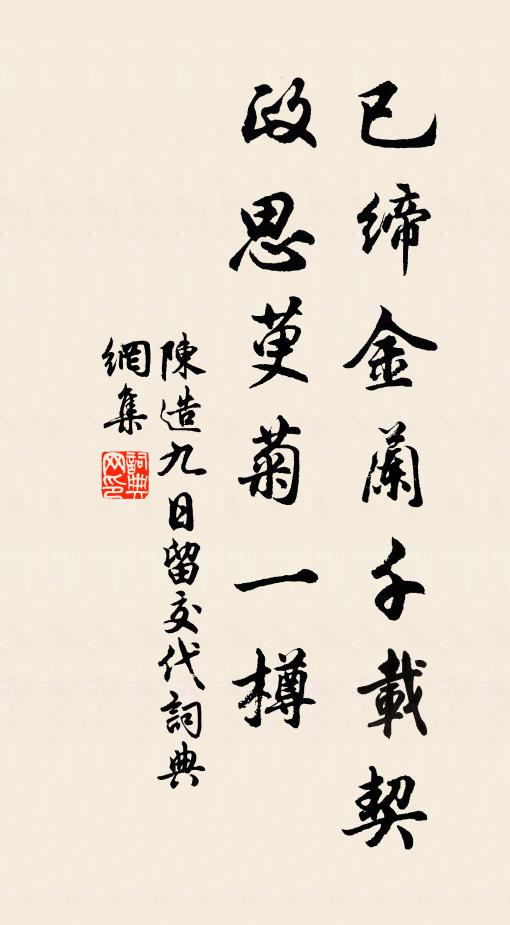 已締金蘭千載契
政思萸菊一樽
陳造九日留交代詞典
網集
詞典網印